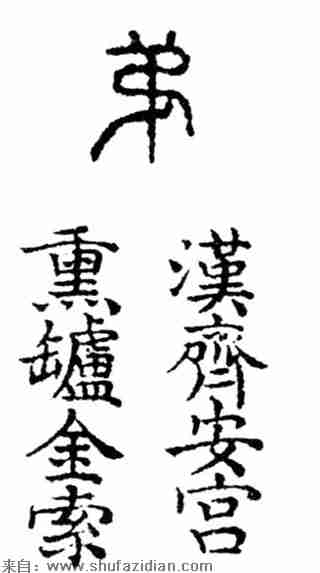 弟
漢齊安宮
熏罏金索
来自：www.shufazidian.com